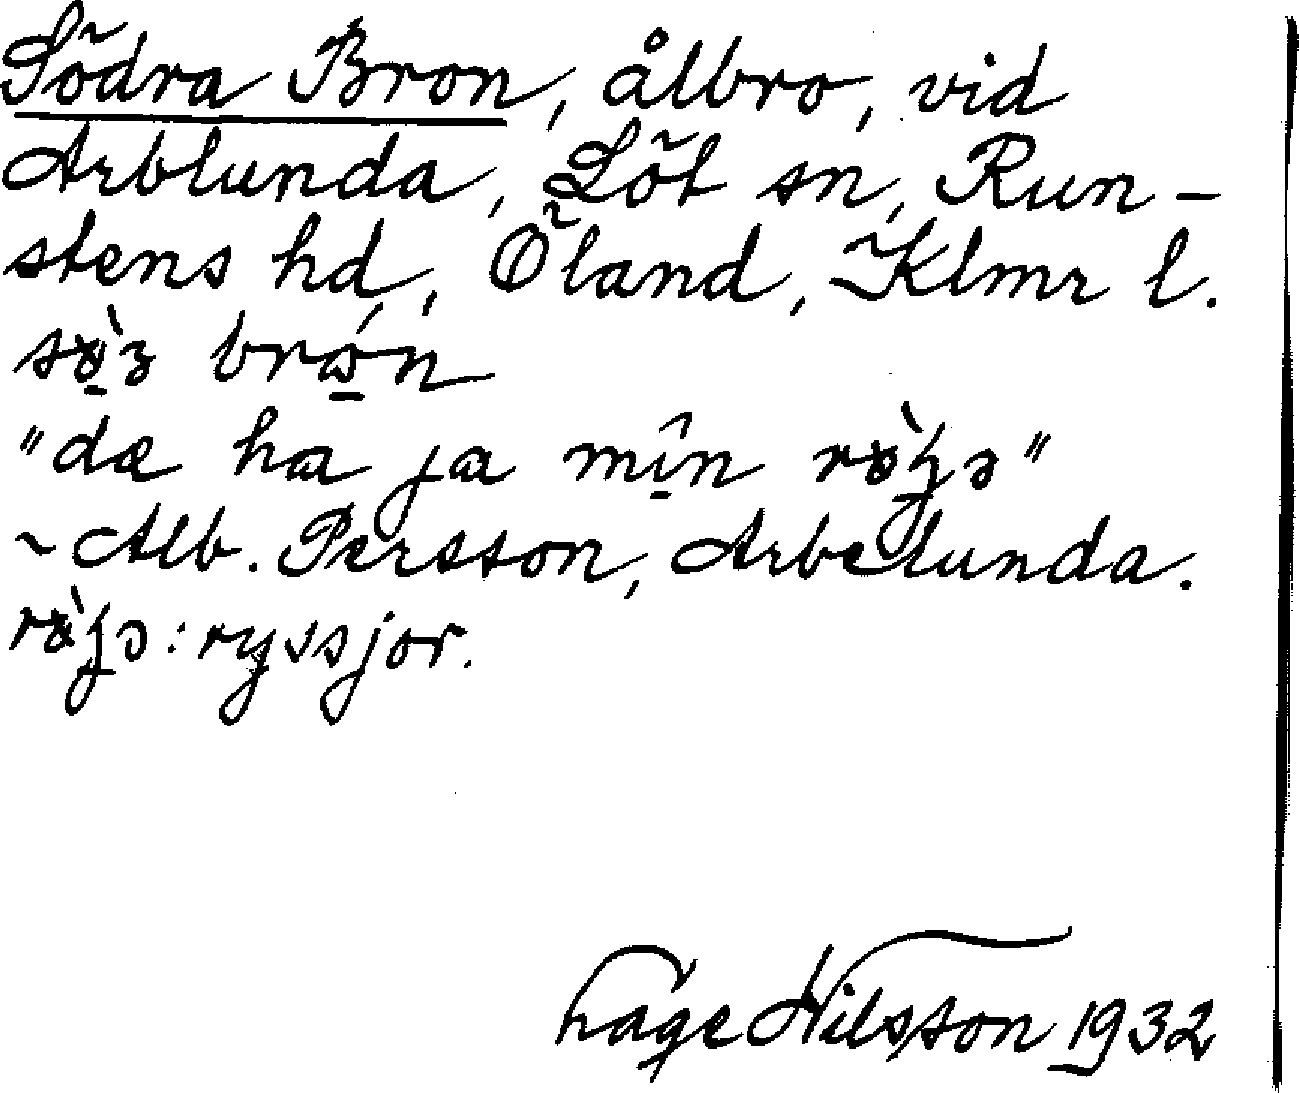 Södra Bron, ålbro, vid
Arblunda, Löt sn, Run-
stens hd, Öland, Klmr l.
brɷ́n
"dæ ha ja mîn
~ Alb. Persson, Arbelunda.
: ryssjor.
Hage Nilsson 1932